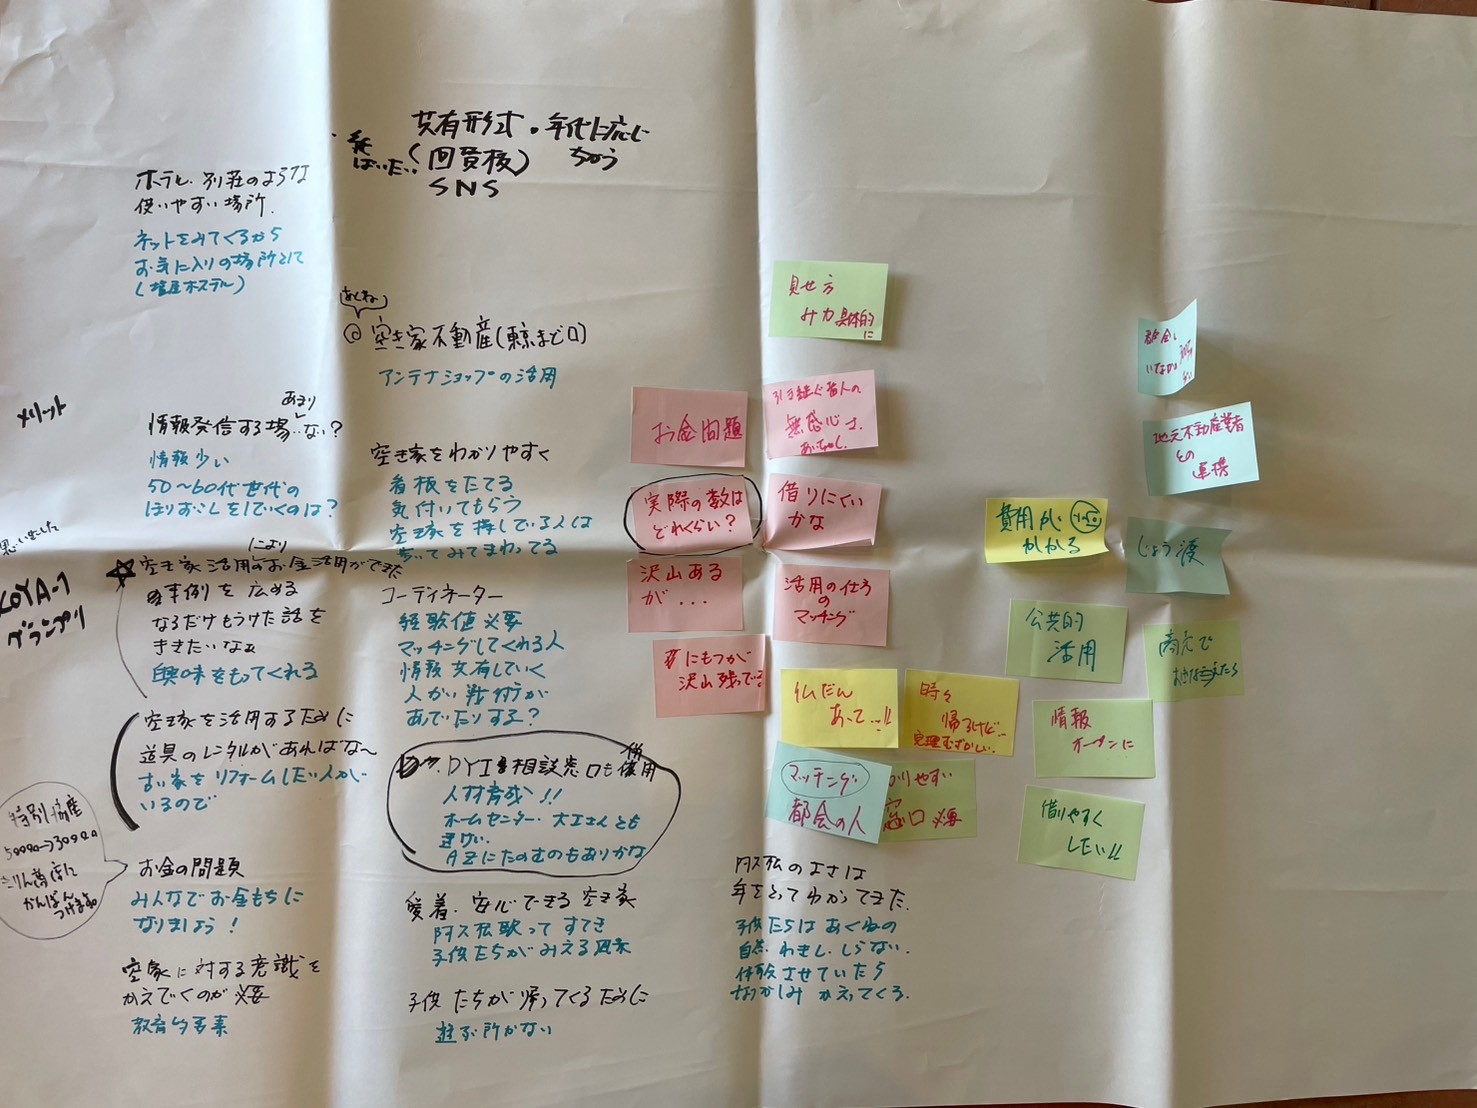 共有形式・年代に応じ
(回覧板) ちがう
SNS
ホテル、別荘のような
使いやすい場所.
ネットをみてくるから
お気に入りの場所として
メリット
情報発信する場…ない?
あまり
情報少い
50〜60代世代の
ほりおこしをしていくのは?
思いました
KOYA-1
グランプリ
☆空き家活用のお金活用ができた
により
事例を広める
なるだけもうけた話を
ききたいなぁ
興味をもってくれる
空き家を活用するために
道具のレンタルがあればな〜
古い家をリフォームしたい人が
いるので
特別協産
5000→3000
かんばん
お金の問題
みんなでお金もちに
なりましょう!
空家に対する意識を
かえていくのが必要
教育的要素
あくね
◎空き家不動産(東京まど口)
アンテナショップの活用
空き家をわかりやすく
看板をたてる
気付いてもらう
空き家を探している人は
歩いてみてまわってる
コーディネーター
経験値必要
マッチングしてくれる人
情報共有していく
人がい
あいでたりする?
DYI 相談窓口も併用
人材育成!!
ホームセンター・大工さんとも
AZにたのむのもありかな
愛着、安心できる空き家
子供たちがみえる風景
子供たちが帰ってくるために
遊ぶ所がない
見せ方
具体的に
お金問題
引き継ぐ若人の
無感心さ
実際の数は
どれくらい?
借りにくい
かな
沢山ある
が...
活用の仕方
の
マッチング
にもつが
沢山残っている
仏だん
あって…!!
時々
帰るけど…
マッチング
都会の人
かりやすい
窓口必要
費用が
かかる
公共的
活用
情報
オープンに
借りやすく
したい!!
都会と
いなかの
地元不動産業者
との
連携
じょう渡
のよさは
年をとってわかってきた.
子供たちはあくねの
自然 しらない.
体験させていたら
なつかしみ かえってくる.